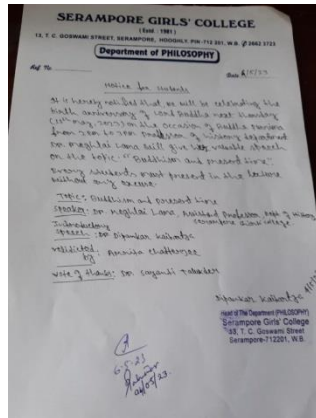 SERAMPORE GIRLS' COLLEGE
(Estd : 1981)
13, T. C. GOSWAMI STREET, SERAMPORE, HOOGHLY, PIN-712 201, W.B. 2662 3723
Department of PHILOSOPHY
Ref. No. Date
Notice for students
It is hereby notified that we will be celebrating the
birth anniversary of Lord Buddha next Monday
on the occasion of Buddha Purnima
from to Professor of History department
Dr. Meghlai Lama will give her valuable speech
on the topic "Buddhism and present time".
Every students must present in the lecture
without any excuse.
Topic: Buddhism and present time
Speaker: Dr. Meghlai Lama, Assistant Professor, Dept of History
Serampore Girls' College
Introductory
Speech: Dr Dipankar
by: Amrita Chatterjee
Vote of thanks: Dr. Sayanti
Dipankar
Head of The Department (PHILOSOPHY)
Serampore Girls' College
13, T. C. Goswami Street
Serampore-712201, W.B.
6.5.23